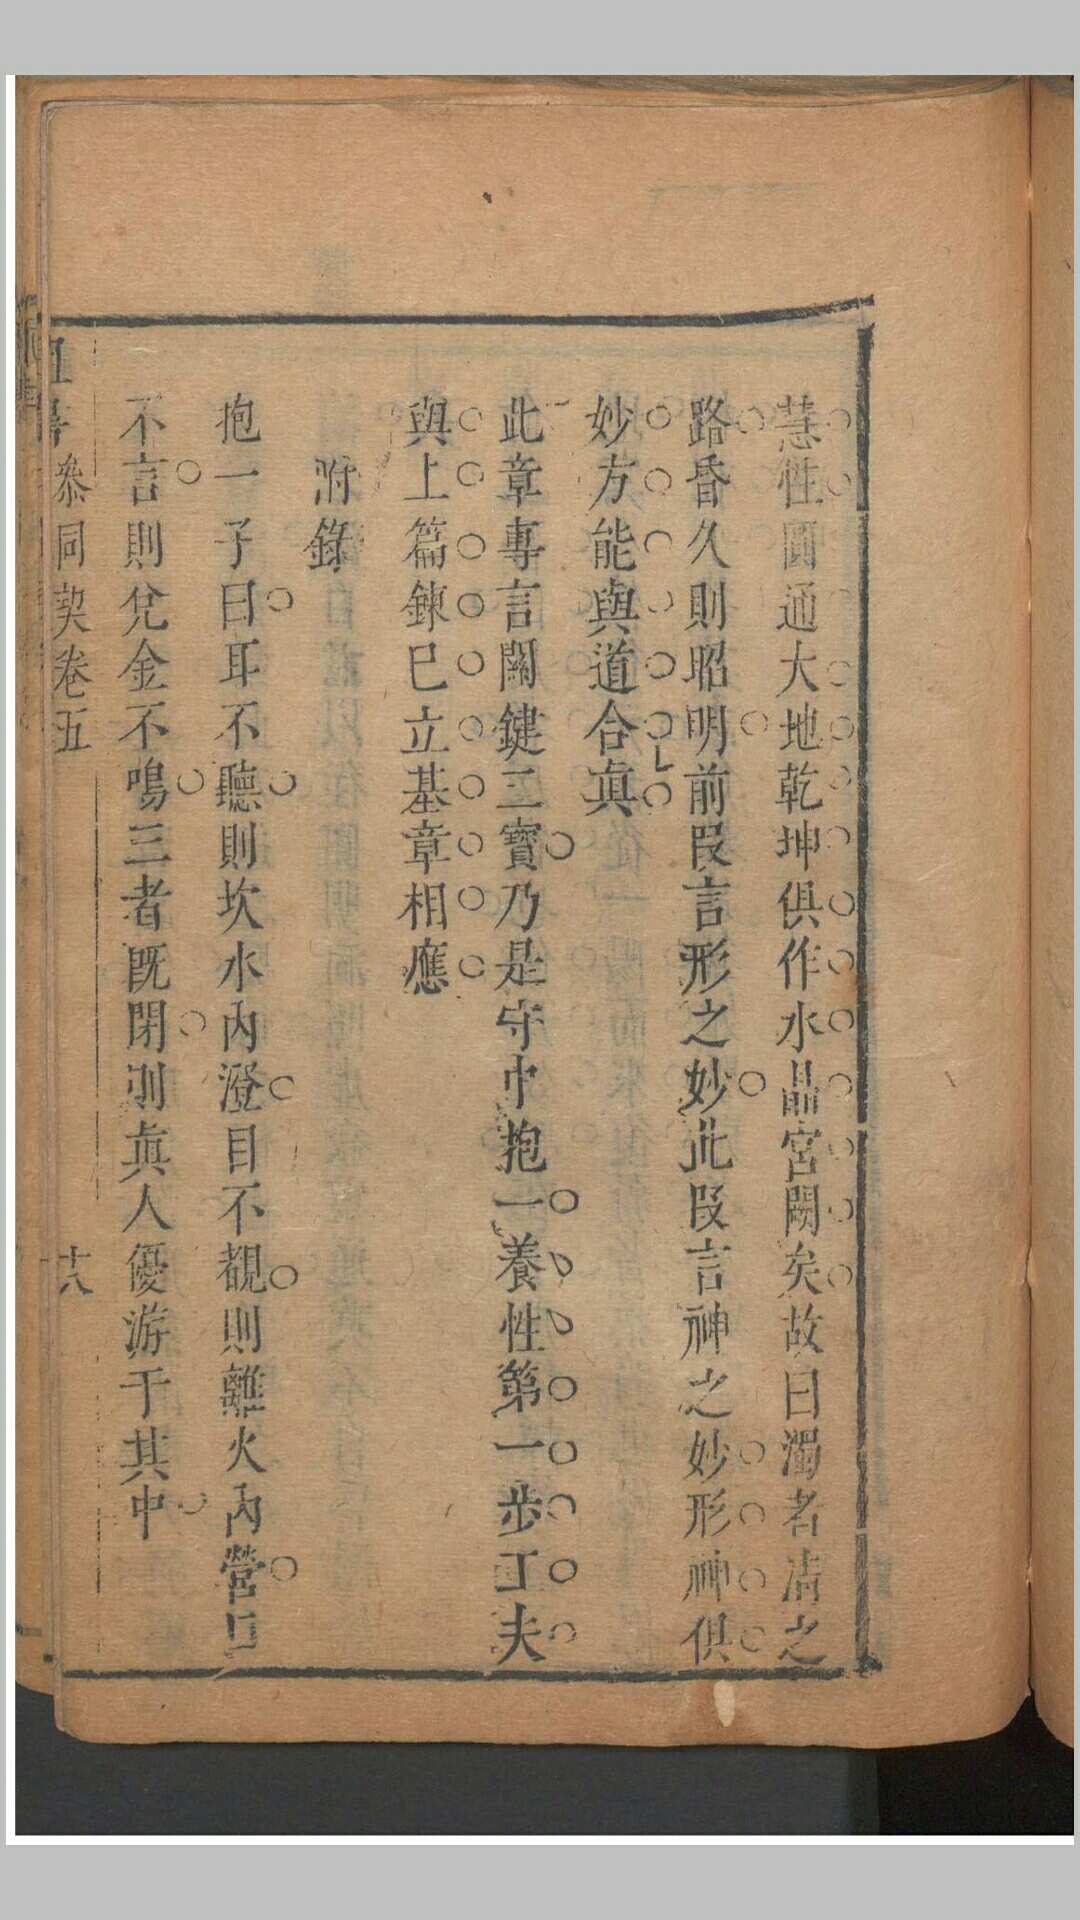 慧性圓通大地乾坤俱作水晶宮闕矣故曰濁者清之
路昏久則昭明前叚言形之妙此叚言神之妙形神俱
妙方能與道合眞
此章專言關鍵三寶乃是守中抱一養性第一步工夫
與上篇鍊巳立基章相應
附錄
抱一子曰耳不聽則坎水內澄目不覩則離火內營口
不言則兌金不鳴三者旣閉則眞人優游于其中
參同契卷五
十八